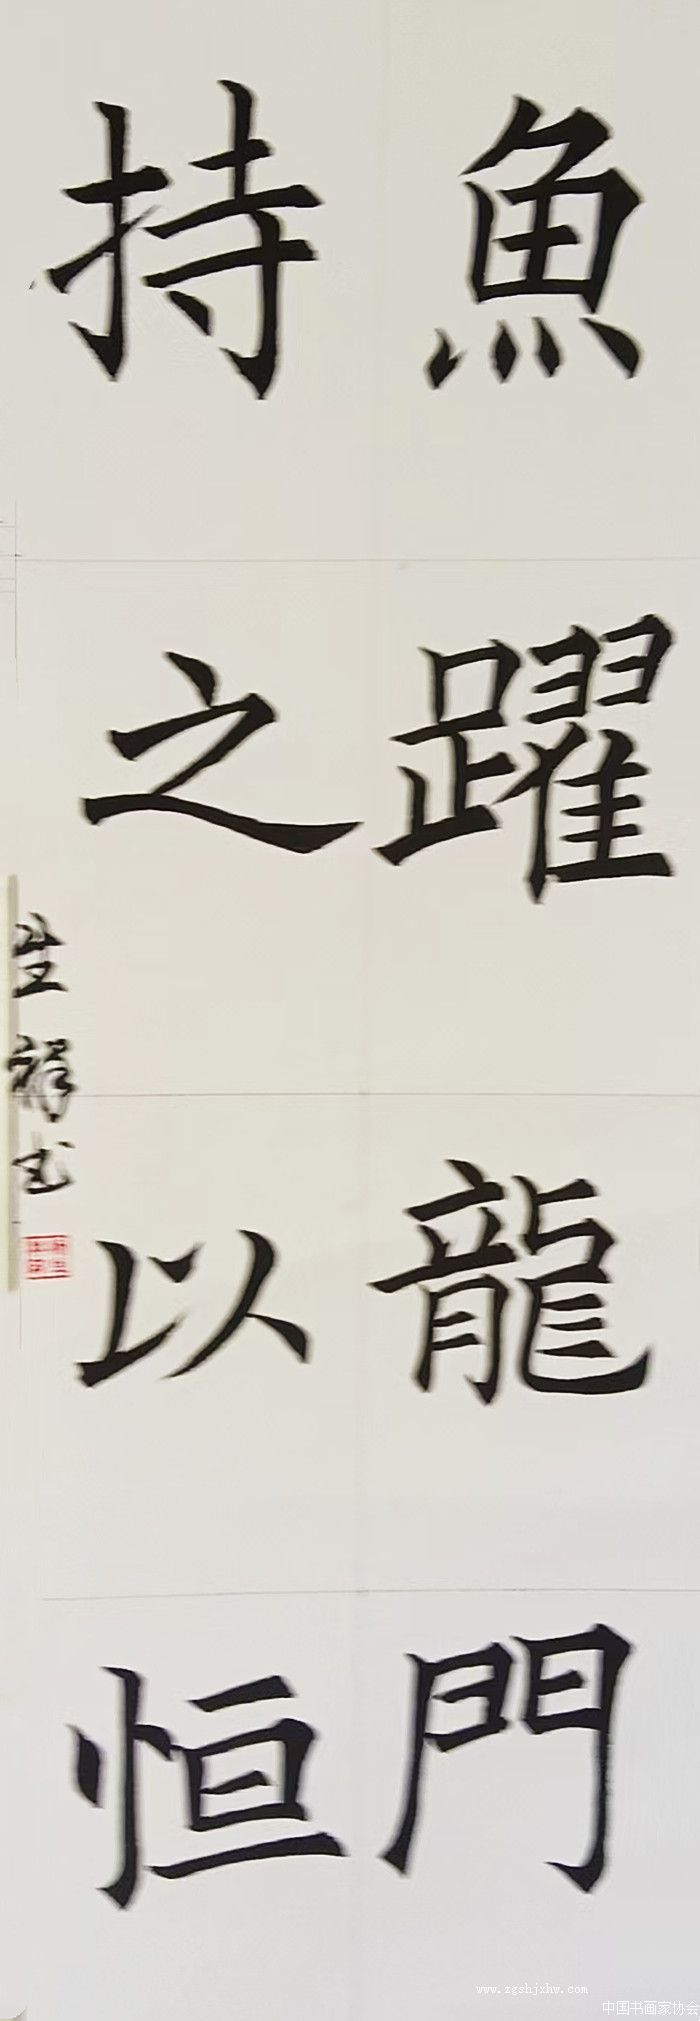 魚躍龍門
持之以恒
生祥书
www.zgshjxhw.com
中国书画家协会